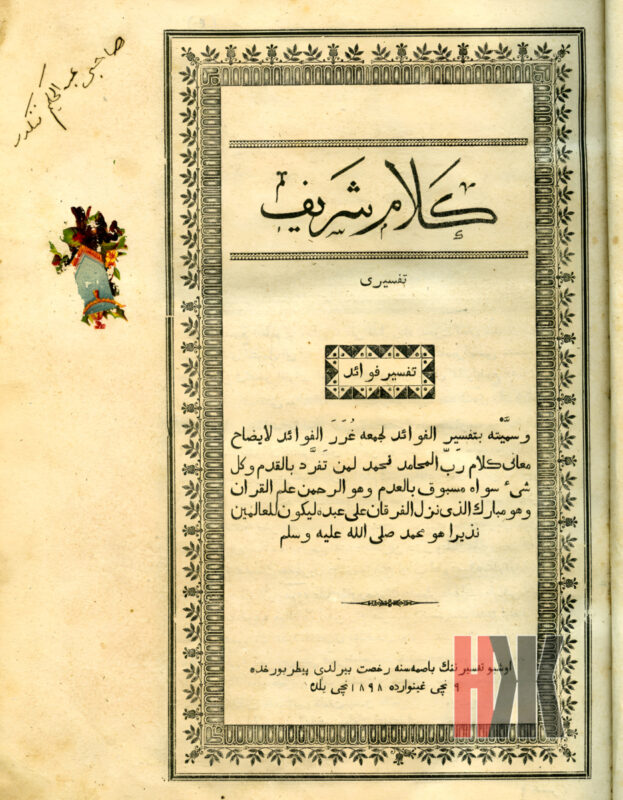 صاحبی عبد الحکیم
كَلَام شَرِيف
تفسيرى
تفسير فوائد
وسمّيته بتفسير الفوائد لجمعه غُرَرَ الفوائد لايضاح
معانى كلام ربّ المحامد فحمد لمن تفرّد بالقدم وكل
شىء سواه مسبوق بالعدم وهو الرحمن علم القران
وهو مبارك الذى نزل الفرقان على عبده ليكون للعالمين
نذيرا هو محمد صلى الله عليه وسلم
اوشبو تفسير ننك باصمه سنه رخصت بيرلدى پيطربورغده
٩ نچى غينوارده ١٨٩٨ نچى يلده
HKK